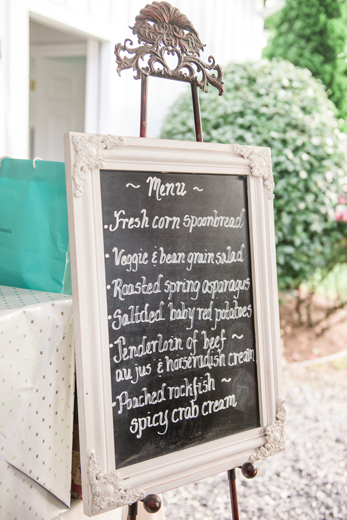 ~ Menu ~
· Fresh corn spoonbread
· Veggie & bean grain salad
· Roasted spring asparagus
· Saltded baby red potatoes
· Tenderloin of beef ~
au jus & horseradish cream
· Poached rockfish ~
spicy crab cream